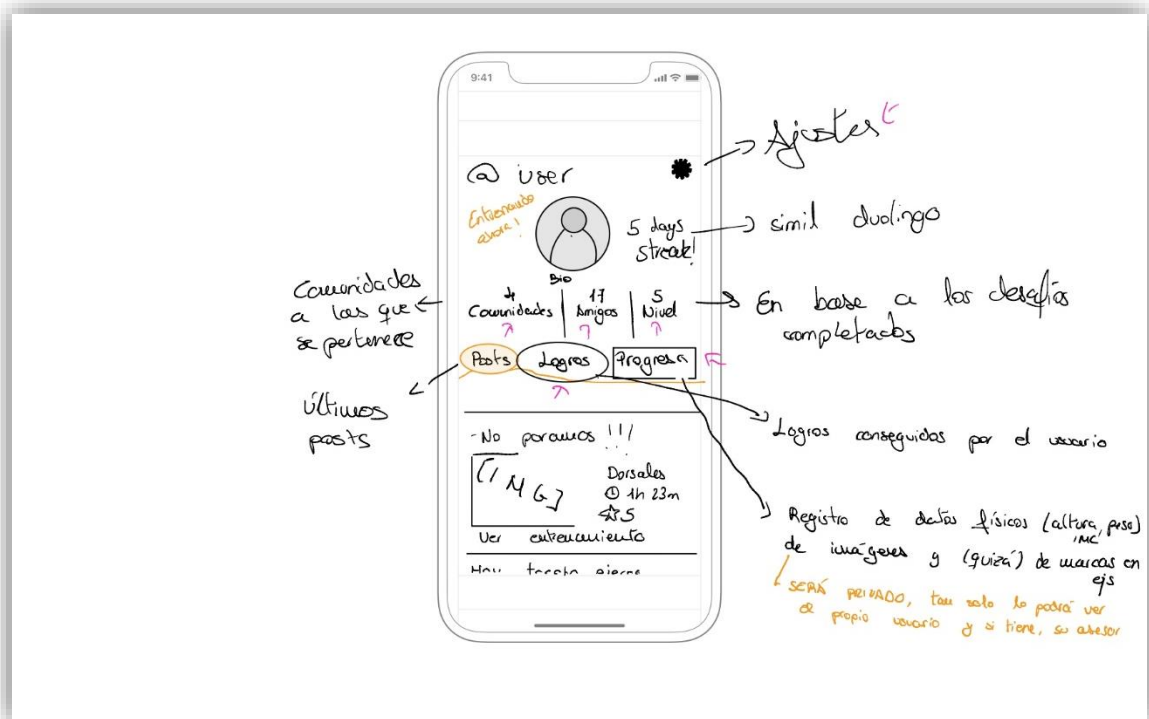 9:41
Ajustes
@ user
Entrenando
ahora!
5 days
streak!
simil duolingo
Bio
Comunidades
a las que
se pertenece
4
Comunidades
17
Amigos
5
Nivel
En base a los desafíos
completados
Posts
Logros
Progreso
últimos
posts
Logros conseguidos por el usuario
-No paramos !!!
[IMG]
Dorsales
1h 23m
5
Ver entrenamiento
Hoy
Registro de datos físicos (altura, peso)
IMC
de imágenes y (quizá) de marcas en
ejs
SERÁ PRIVADO, tan solo lo podrá ver
el propio usuario y si tiene, su asesor